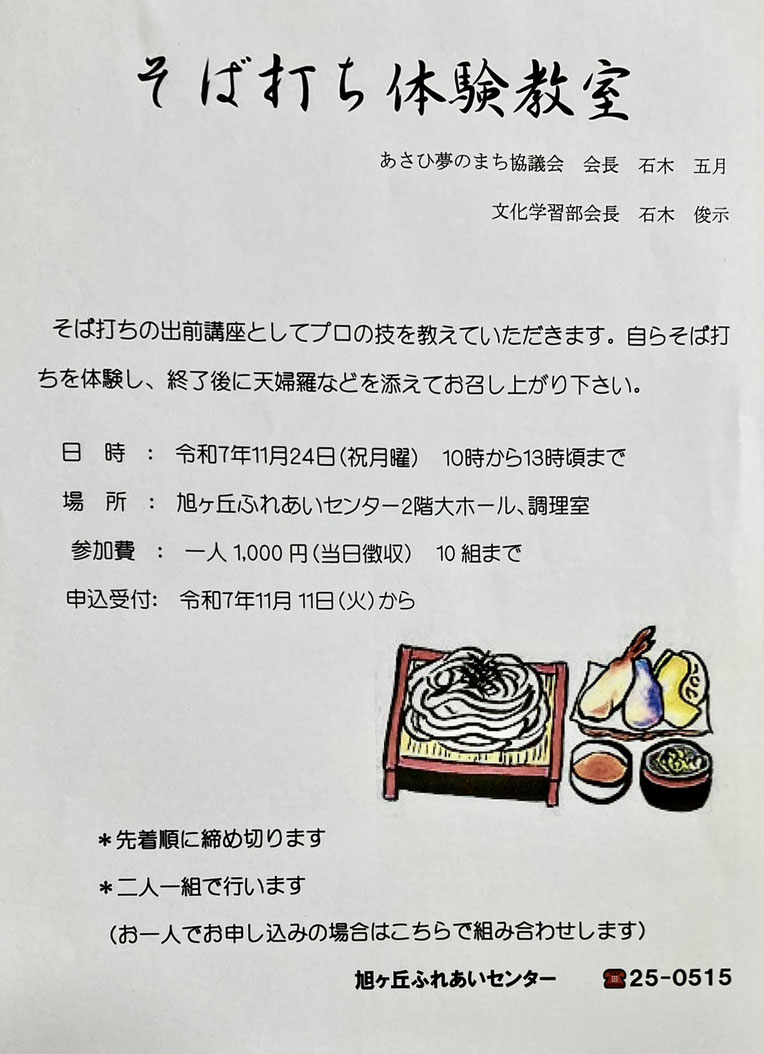 そば打ち体験教室
あさひ夢のまち協議会　会長　石木　五月
文化学習部会長　石木　俊示
そば打ちの出前講座としてプロの技を教えていただきます。自らそば打
ちを体験し、終了後に天婦羅などを添えてお召し上がり下さい。
日　時　：　令和7年11月24日（祝月曜）　10時から13時頃まで
場　所　：　旭ヶ丘ふれあいセンター2階大ホール、調理室
参加費　：　一人 1,000 円（当日徴収）　10 組まで
申込受付：　令和7年11月 11日（火）から
＊先着順に締め切ります
＊二人一組で行います
（お一人でお申し込みの場合はこちらで組み合わせします）
旭ヶ丘ふれあいセンター　☎25-0515